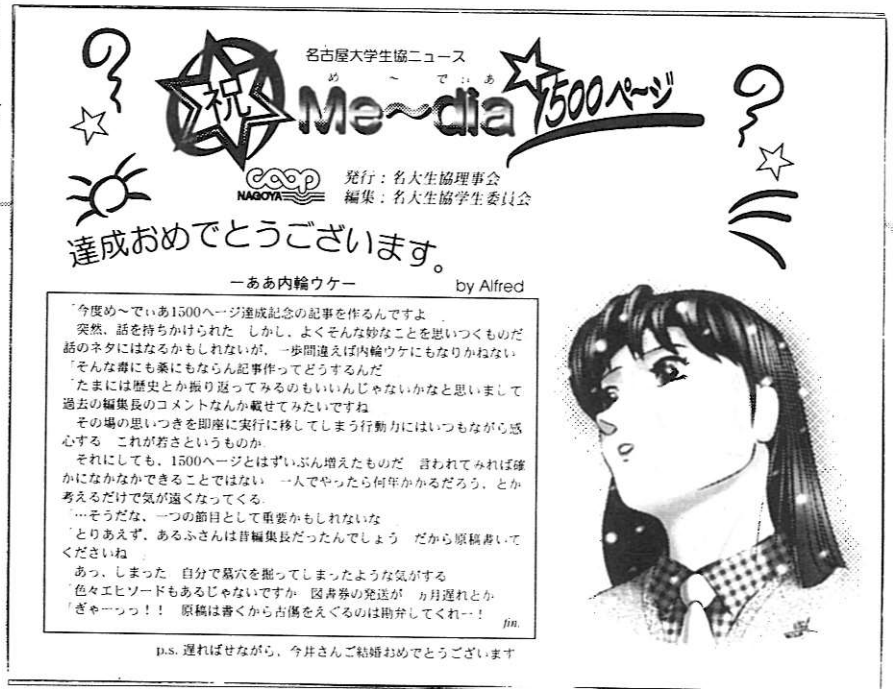 名古屋大学生協ニュース
め ～ でぃあ
祝 Me～dia 1500ページ
COOP
NAGOYA
発行：名大生協理事会
編集：名大生協学生委員会
達成おめでとうございます。
－ああ内輪ウケ－ by Alfred
「今度め～でぃあ1500ページ達成記念の記事を作るんですよ
突然、話を持ちかけられた しかし、よくそんな妙なことを思いつくものだ
話のネタにはなるかもしれないが、一歩間違えば内輪ウケにもなりかねない
「そんな毒にも薬にもならん記事作ってどうするんだ
「たまには歴史とか振り返ってみるのもいいんじゃないかなと思いまして
過去の編集長のコメントなんか載せてみたいですね
その場の思いつきを即座に実行に移してしまう行動力にはいつもながら感
心する これが若さというものか
それにしても、1500ページとはずいぶん増えたものだ 言われてみれば確
かになかなかできることではない 一人でやったら何年かかるだろう、とか
考えるだけで気が遠くなってくる
「…そうだな、一つの節目として重要かもしれないな
「とりあえず、あるふさんは昔編集長だったんでしょう だから原稿書いて
くださいね
あっ、しまった 自分で墓穴を掘ってしまったような気がする
「色々エピソードもあるじゃないですか 図書券の発送が ヵ月遅れとか
「ぎゃーっっ！！ 原稿は書くから古傷をえぐるのは勘弁してくれー！
fin.
p.s. 遅ればせながら、今井さんご結婚おめでとうございます